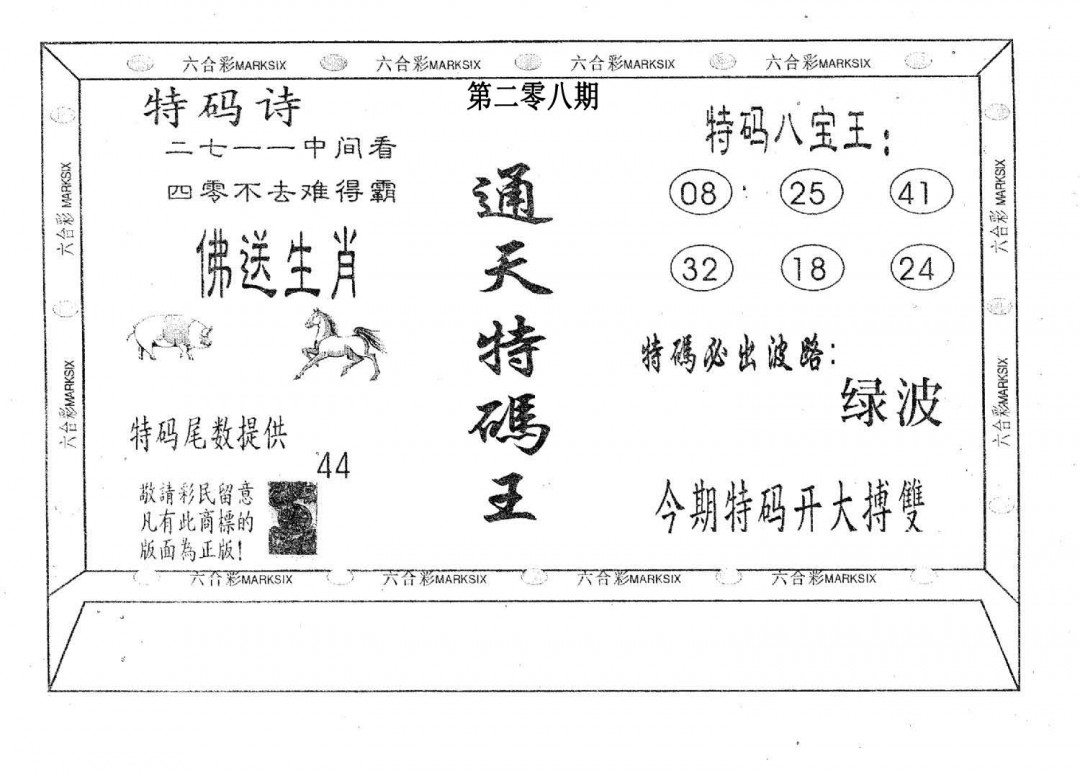 六合彩MARKSIX 六合彩MARKSIX 六合彩MARKSIX 六合彩MARKSIX
第二零八期
特码诗
二七一一中间看
四零不去难得霸
佛送生肖
特码尾数提供
44
敬請彩民留意
凡有此商標的
版面為正版!
通天特碼王
特码八宝王:
08 25 41
32 18 24
特碼必出波路:
绿波
今期特码开大搏雙
六合彩 MARKSIX
六合彩MARKSIX
六合彩 MARKSIX
六合彩MARKSIX
六合彩MARKSIX 六合彩MARKSIX 六合彩MARKSIX 六合彩MARKSIX